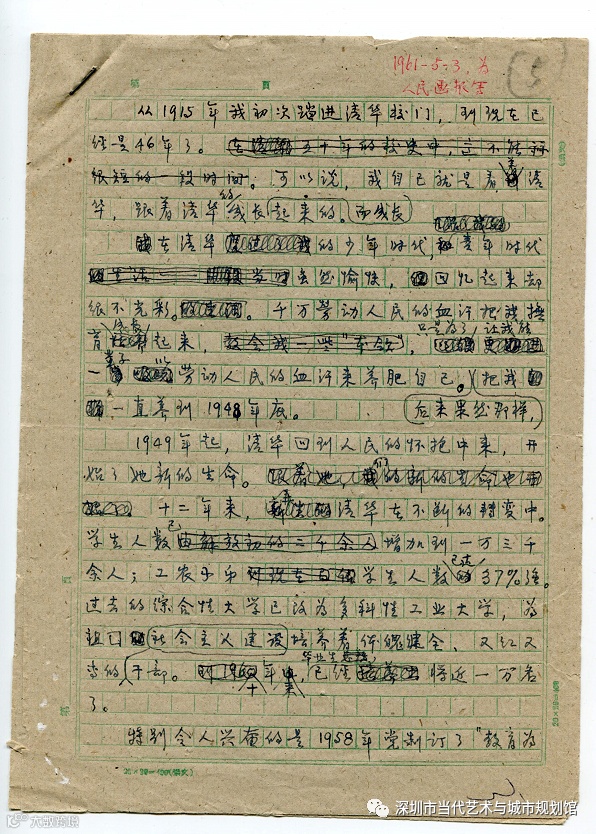 1961-5-3,为
人民画报写
5
第 頁
从1915年我初次踏进清华校门,到现在已
经是46年了。在清华五十年的校史中,这不能算
很短的一段时间。可以说,我自己就是看着清
华,跟着清华的成长起来的。而成长
在清华的少年时代,和青年时代
虽然愉快,回忆起来却
很不光彩。千万劳动人民的血汗把我抚
育成长起来,教会我一些"本领",只是为了让我能
一辈子以劳动人民的血汗来养肥自己。把我
一直养到1948年底。后来果然那样,
1949年起,清华回到人民的怀抱中来,开
始了她新的生命。跟着她,我们的新的生命也开
十二年来,清华在不断的转变中。
学生人数已由解放初的二千余人增加到一万三千
余人;工农子弟学生人数已达37%强。
过去的综合性大学已改为多科性工业大学,为
祖国社会主义建设培养着体魄健全、又红又
专的干部。到1960年止,十年来毕业生总数已经将近一万名
了。
特别令人兴奋的是1958年党制订了"教育为
20×20=400
深圳市当代艺术与城市规划馆
大艺网